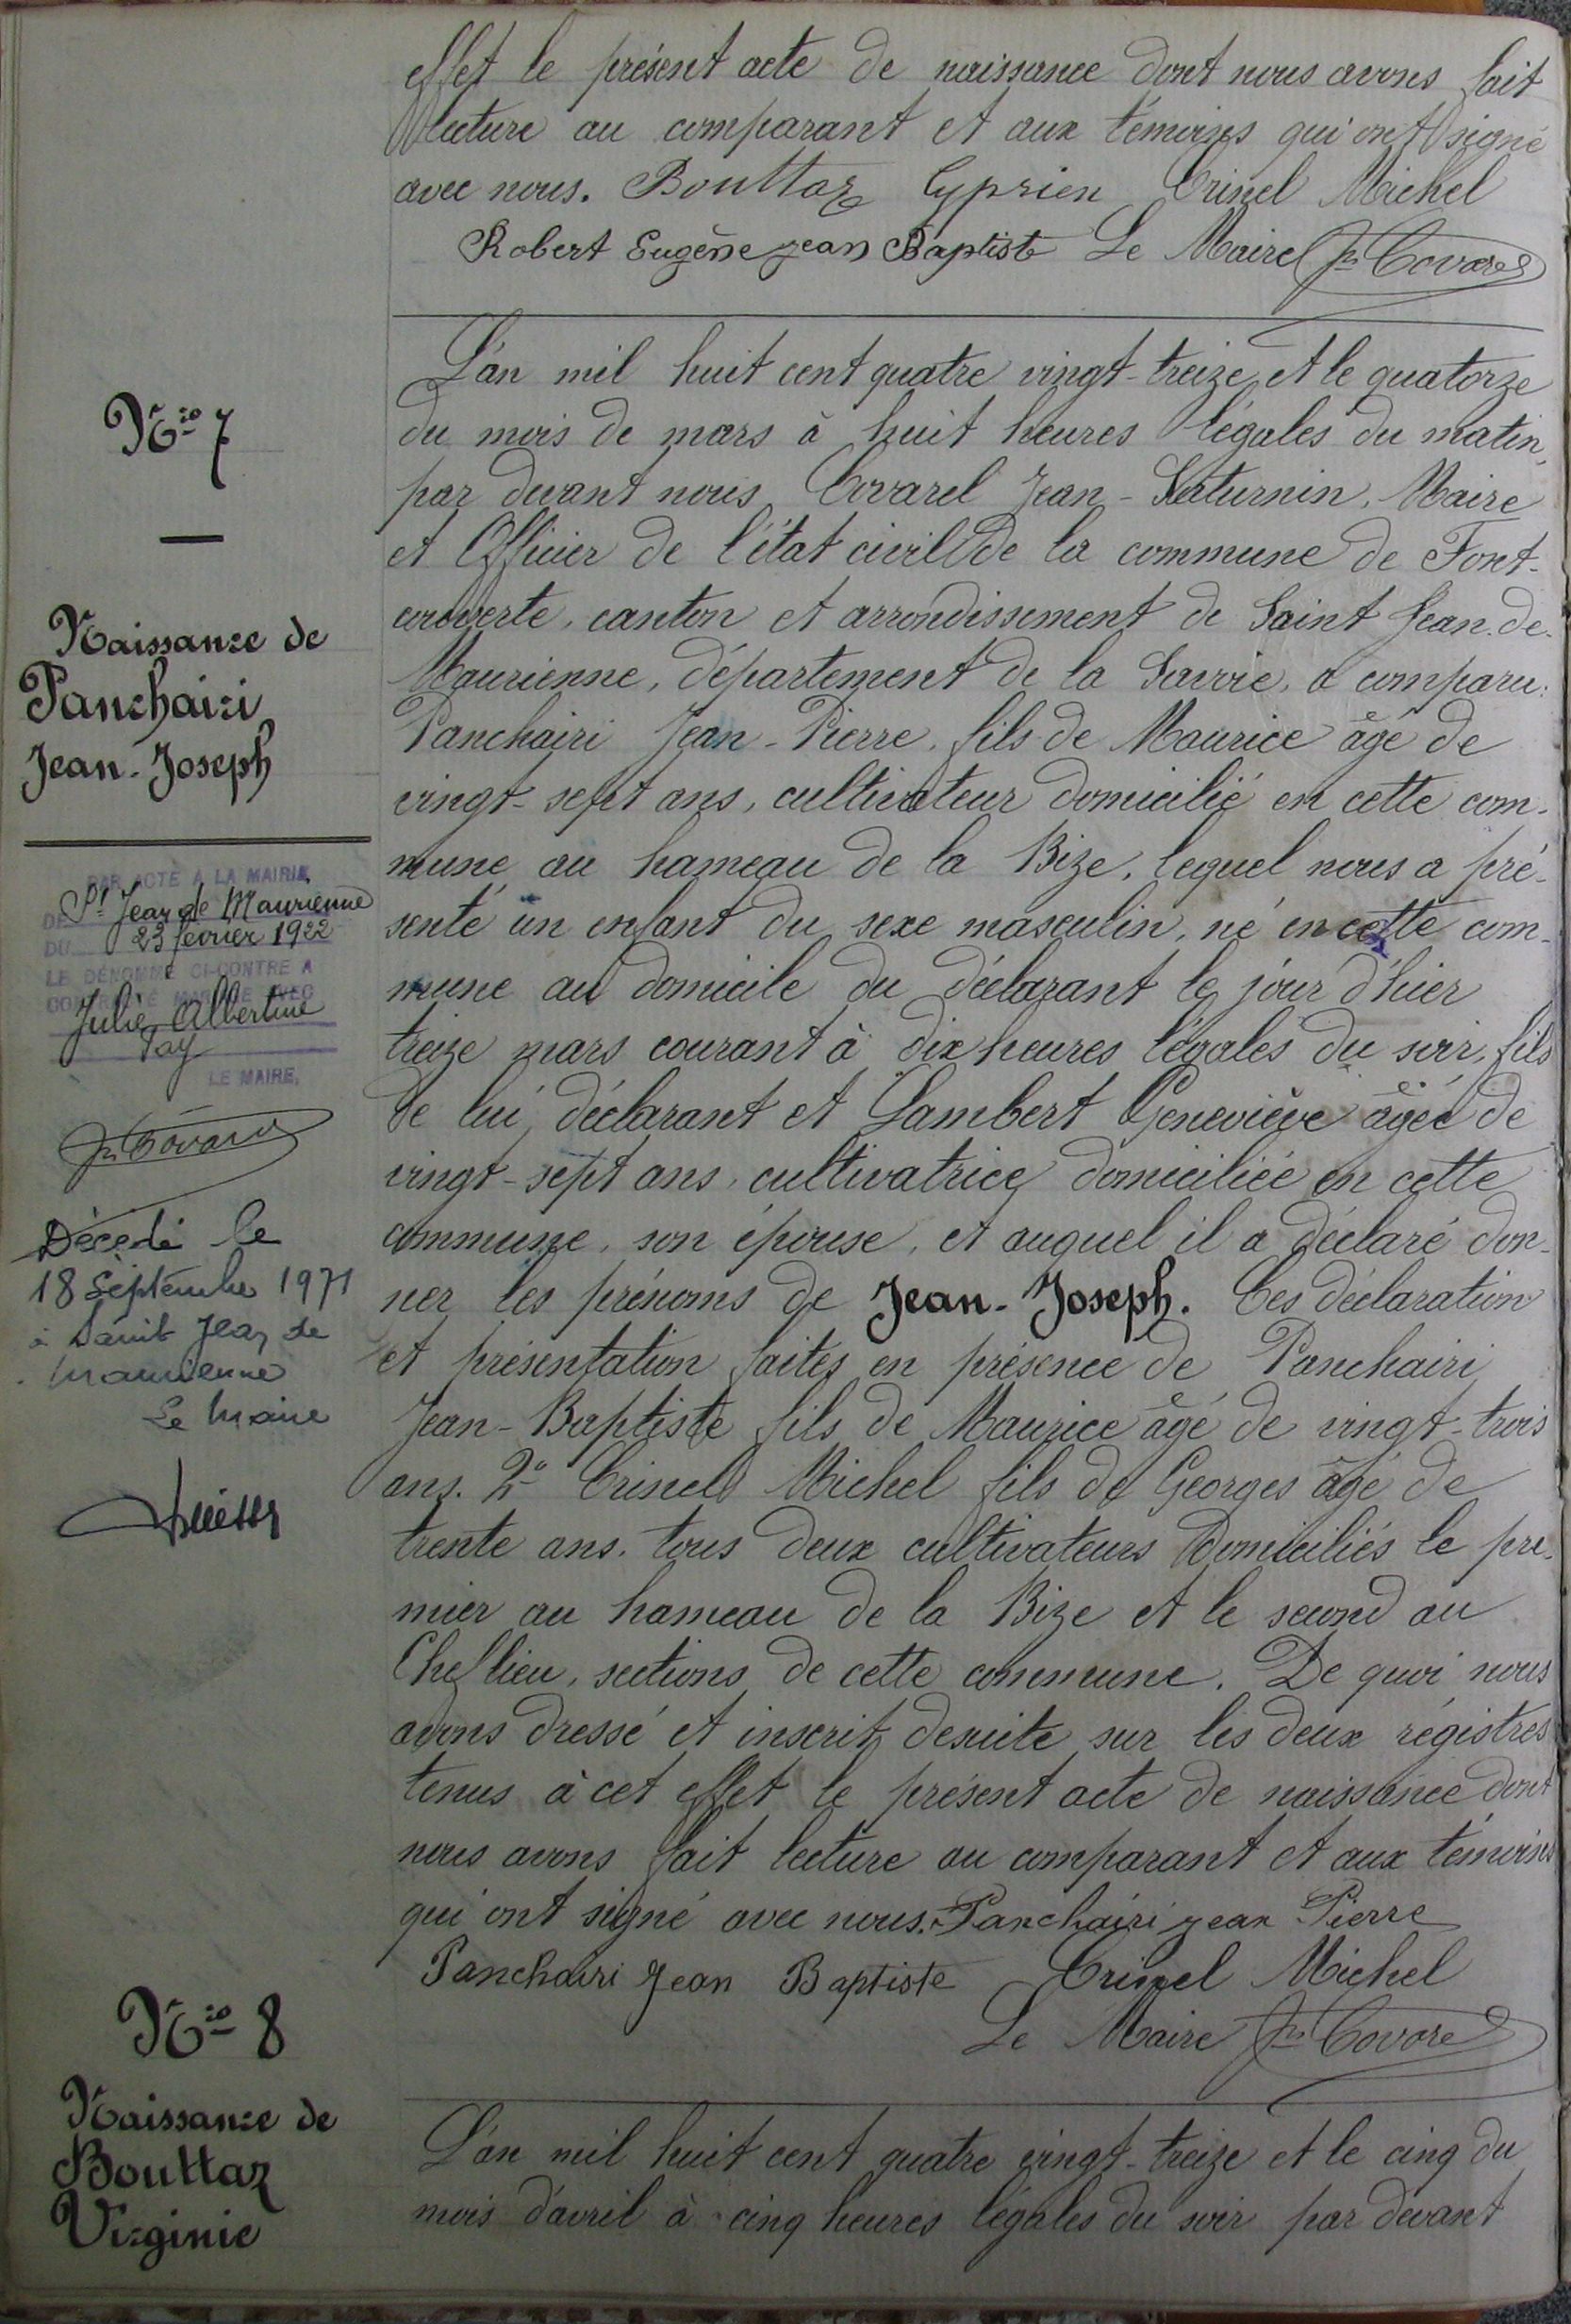 effet le présent acte de naissance dont nous avons fait
lecture au comparant et aux témoins qui ont signé
avec nous. Bouttaz Cyprien Crinel Michel
Robert Eugène jean Baptiste Le Maire Jn Covarel
Nro 7
Naissance de
Panchairi
Jean-Joseph
PAR ACTE A LA MAIRIE
DE St Jean de Maurienne
DU 23 février 1922
LE DÉNOMMÉ CI-CONTRE A
CONTRACTÉ MARIAGE AVEC
Julie Albertine
Tay
LE MAIRE,
Jn Covarel
Décédé le
18 Septembre 1971
à Saint Jean de
Maurienne
Le Maire
L'an mil huit cent quatre vingt-treize et le quatorze
du mois de mars à huit heures légales du matin,
par devant nous Covarel Jean-Saturnin, Maire
et Officier de l'état civil de la commune de Font-
couverte, canton et arrondissement de Saint Jean-de-
Maurienne, département de la Savoie, a comparu:
Panchairi Jean-Pierre, fils de Maurice âgé de
vingt-sept ans, cultivateur domicilié en cette com-
mune au hameau de la Bize, lequel nous a pré-
senté un enfant du sexe masculin, né en cette com-
mune au domicile du déclarant le jour d'hier
treize mars courant à dix heures légales du soir, fils
de lui déclarant et Lambert Geneviève âgée de
vingt-sept ans, cultivatrice domiciliée en cette
commune, son épouse, et auquel il a déclaré don-
ner les prénoms de Jean-Joseph. Ces déclaration
et présentation faites en présence de Panchairi
Jean-Baptiste fils de Maurice âgé de vingt-trois
ans. 2° Crinel Michel fils de Georges âgé de
trente ans. tous deux cultivateurs domiciliés le pre-
mier au hameau de la Bize et le second au
Chef lieu, sections de cette commune. De quoi nous
avons dressé et inscrit desuite sur les deux régistres
tenus à cet effet le présent acte de naissance dont
nous avons fait lecture au comparant et aux témoins
qui ont signé avec nous. Panchairi jean Pierre
Panchairi Jean Baptiste Crinel Michel
Le Maire Jn Covarel
Nro 8
Naissance de
Bouttaz
Virginie
L'an mil huit cent quatre vingt-treize et le cinq du
mois d'avril à cinq heures légales du soir par devant